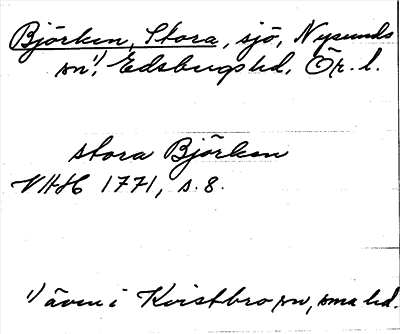 Björken, Stora, sjö, Nysunds
sn¹⁾, Edsbergs hd, Ör. l.
stora Björken
VHH 1771, s. 8.
¹⁾ även i Kvistbro sn, sma hd.